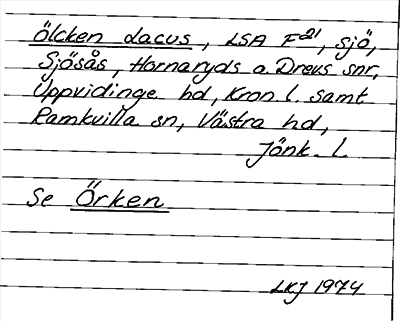 Ölcken Lacus, LSA F21, sjö,
Sjösås, Hornaryds o. Drevs snr,
Uppvidinge hd, Kron. l. samt
Ramkvilla sn, Västra hd,
Jönk. l.
Se Örken
LKJ 1974